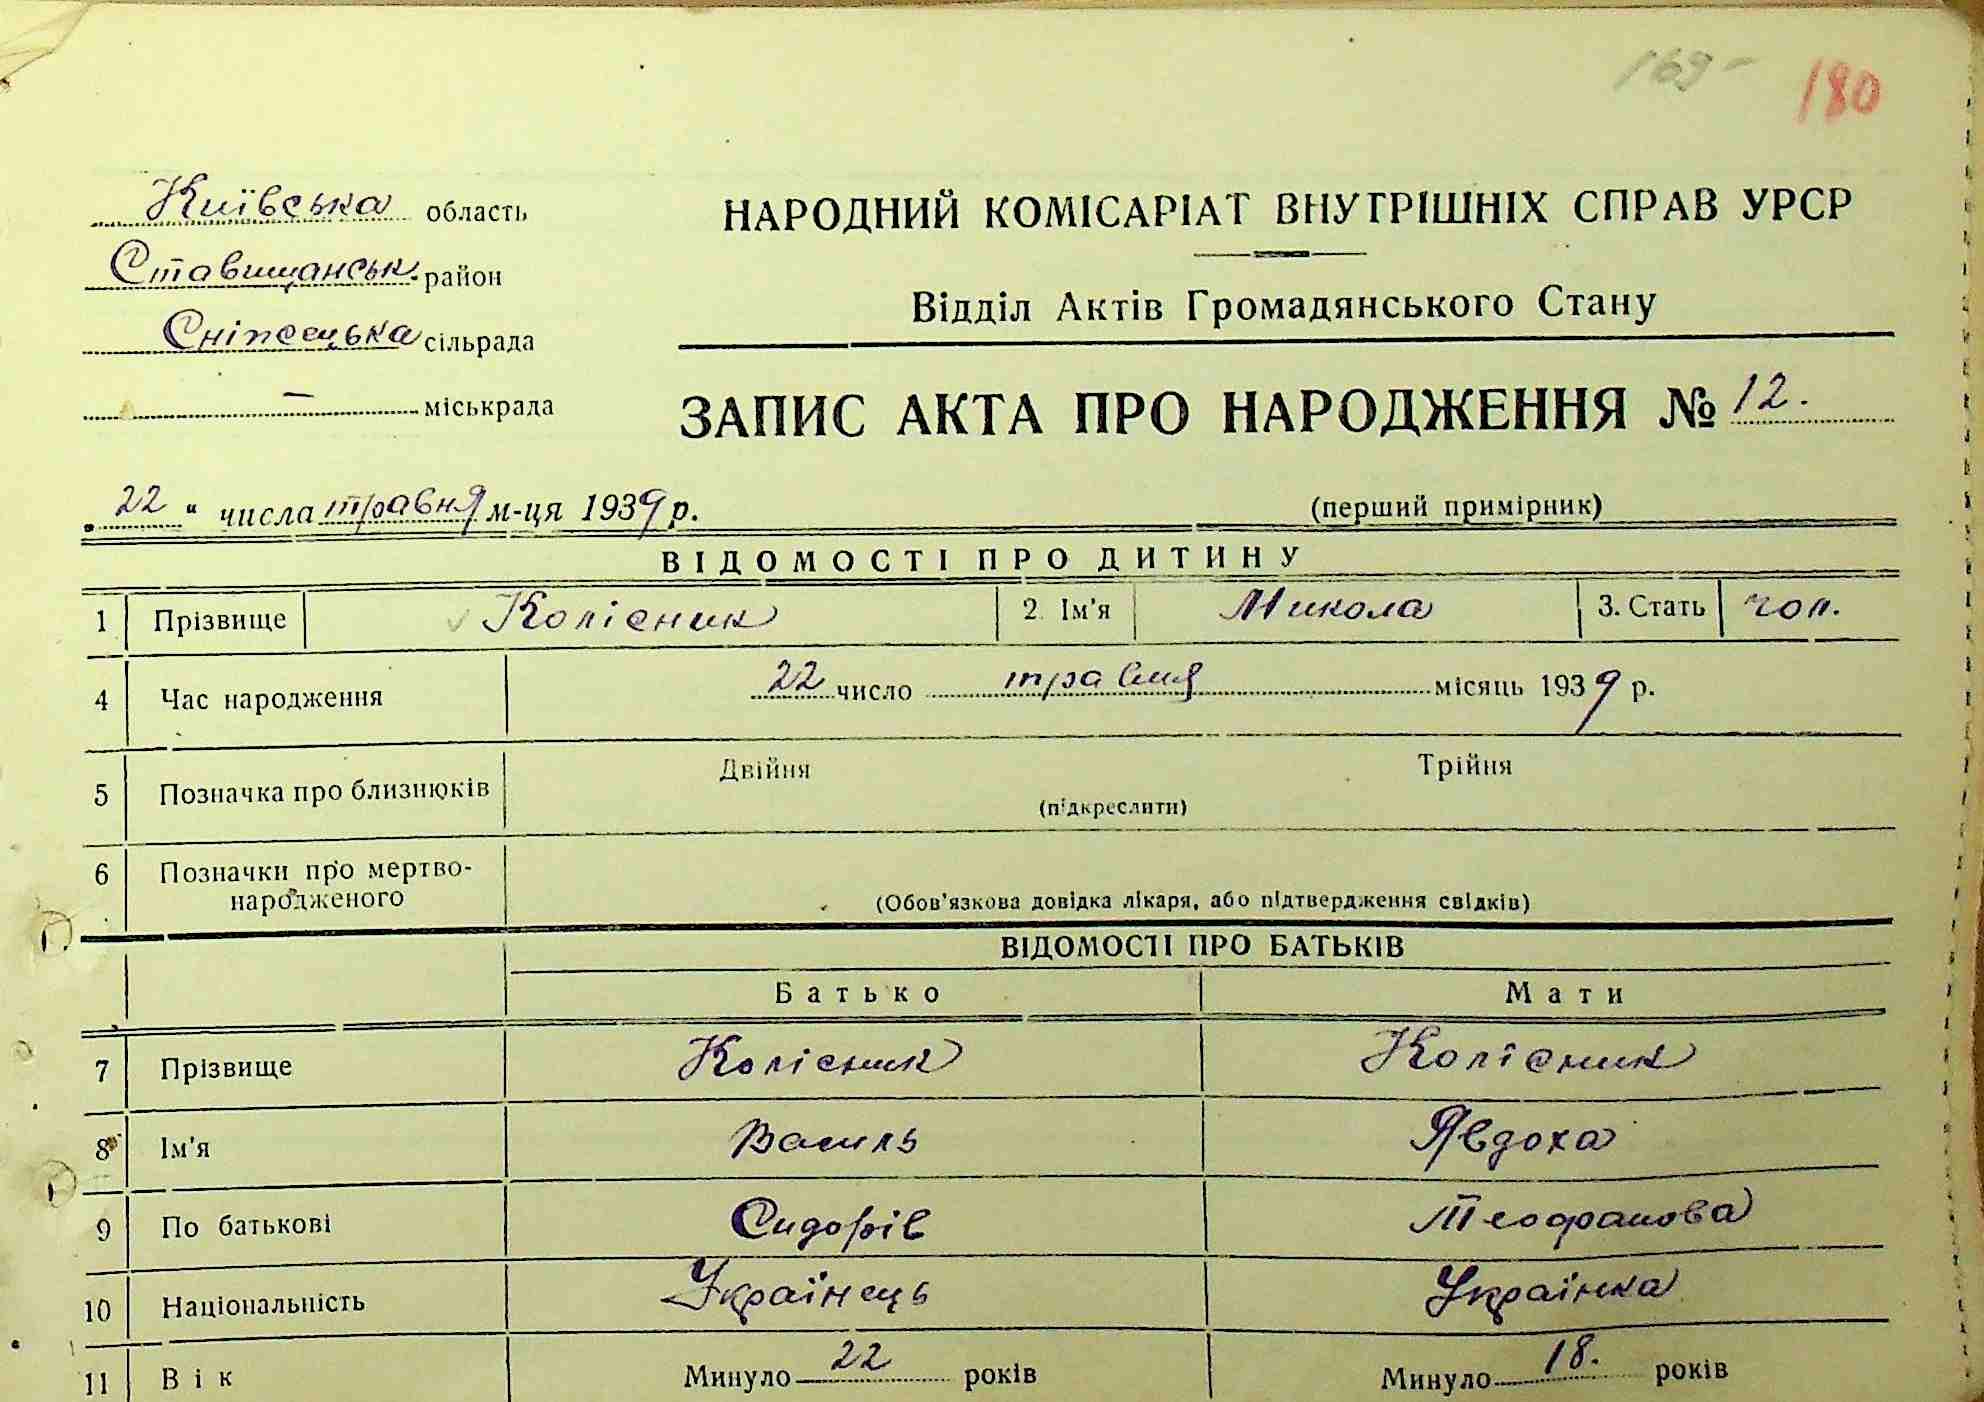 169-
180
Київська область
Ставищанськ. район
Сніжецька сільрада
— міськрада
НАРОДНИЙ КОМІСАРІАТ ВНУТРІШНІХ СПРАВ УРСР
Відділ Актів Громадянського Стану
ЗАПИС АКТА ПРО НАРОДЖЕННЯ № 12.
„ 22 “ числа травня м-ця 1939 р.
(перший примірник)
ВІДОМОСТІ ПРО ДИТИНУ
1 Прізвище Колісник 2. Ім'я Микола 3. Стать чол.
4 Час народження 22 число травня місяць 1939 р.
5 Позначка про близнюків Двійня Трійня
(підкреслити)
6 Позначки про мертво-
народженого
(Обов'язкова довідка лікаря, або підтвердження свідків)
ВІДОМОСТІ ПРО БАТЬКІВ
Батько Мати
7 Прізвище Колісник Колісник
8 Ім'я Василь Явдоха
9 По батькові Сидорів Теофанова
10 Національність Українець Українка
11 Вік Минуло 22 років Минуло 18. років